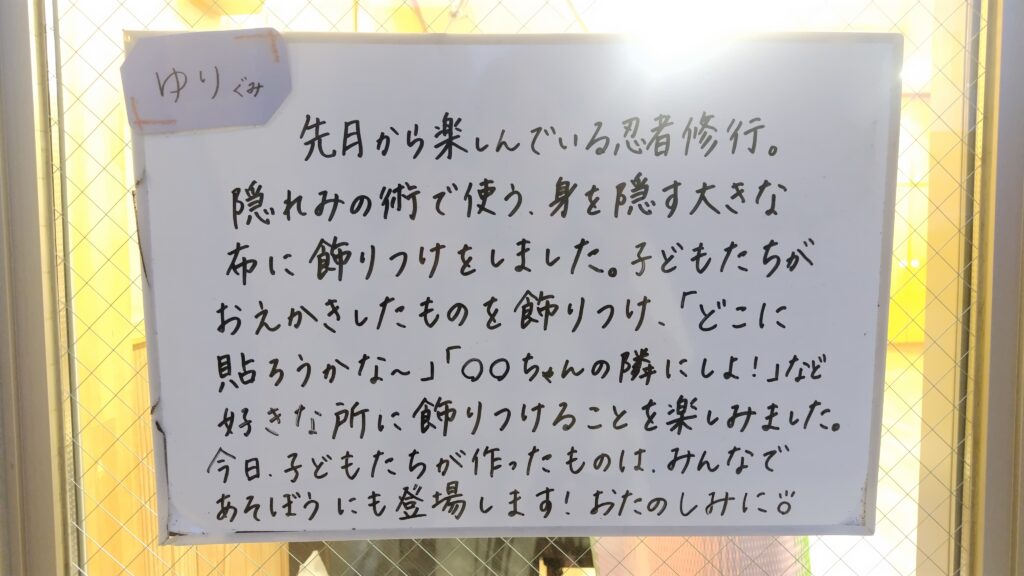 ゆりぐみ
先月から楽しんでいる忍者修行。
隠れみの術で使う、身を隠す大きな
布に飾りつけをしました。子どもたちが
おえかきしたものを飾りつけ、「どこに
貼ろうかな～」「〇〇ちゃんの隣にしよ！」など
好きな所に飾りつけることを楽しみました。
今日、子どもたちが作ったものは、みんなで
あそぼうにも登場します！おたのしみに